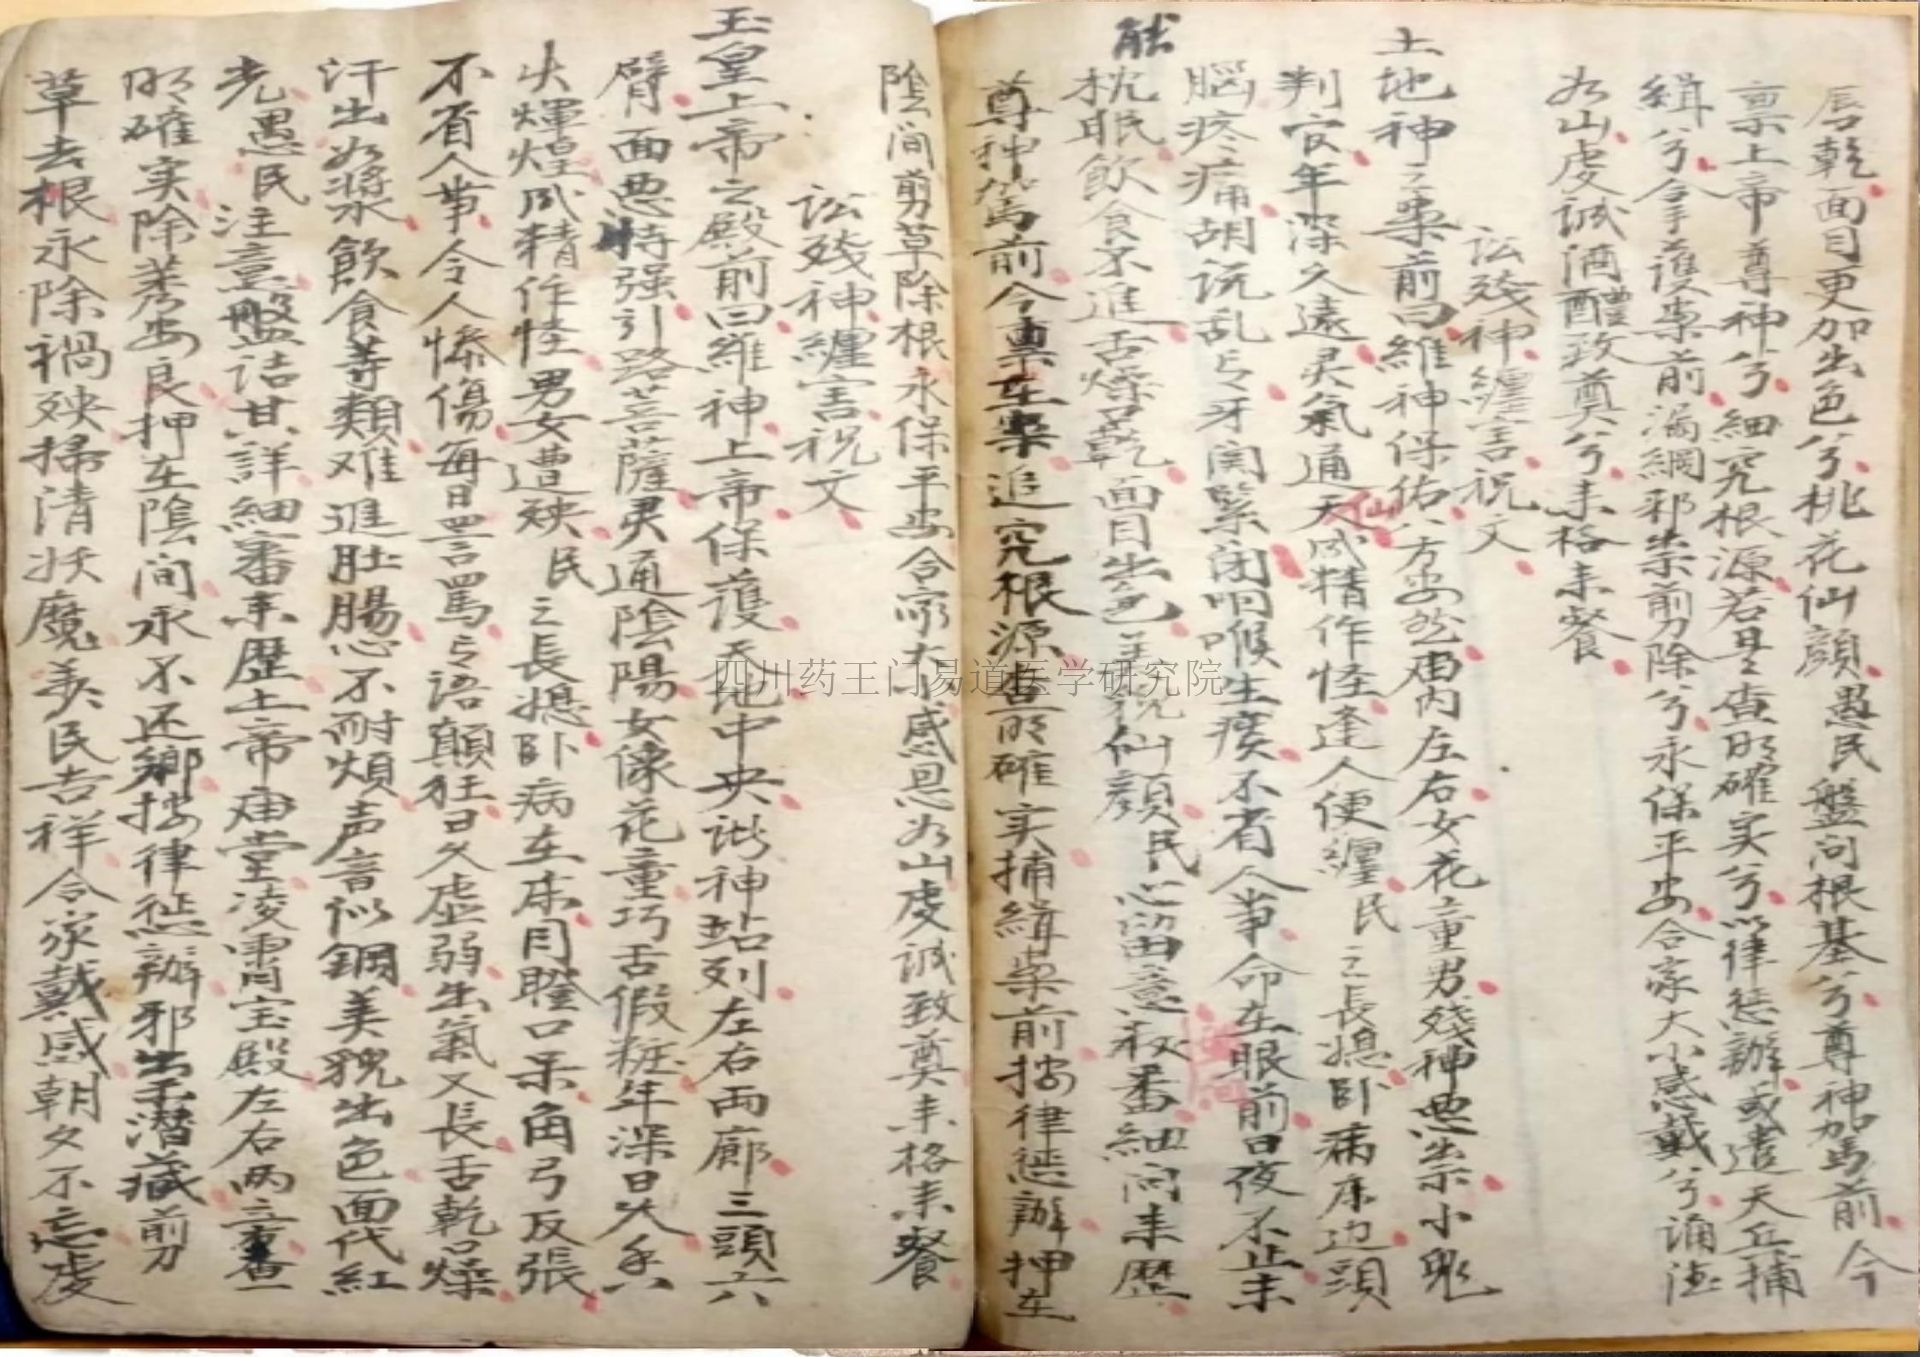 唇乾面目更加出色兮桃花仙顔愚民盤问根基兮尊神驾前今
禀上帝尊神兮細究根源若是查明確実兮以律惩辦或遣天丘捕
緝兮拿護案前漏網邪祟剪除兮永保平安合家大小感戴兮诵德
如山虔诚酒醴致奠兮来格来餐
讼殘神纏害祝文
土地神之案前曰維神保佑八方安然庙内左右女花童男殘神悪祟小鬼
判官年深久遠灵氣通天成精作怪逢人便纏民之長媳卧病床边頭
仙
脳疼痛胡説乱言牙関緊闭咽喉生痰不省人事命在眼前日夜不止未
能
枕眠飲食不進舌燥口乾面目出色美貌仙顔民心留意秋番細问来歷
尊神驾前今稟在案追究根源查明確実捕緝案前按律惩辦押在
陰间剪草除根永保平安合家大小感恩如山虔诚致奠来格来餐
讼殘神纏害祝文
玉皇上帝之殿前曰維神上帝保護天地中央诸神站列左右両廊三頭六
臂面悪恃强引路菩薩灵通陰陽女像花童巧舌假粧年深日久香
火煇煌成精作怪男女遭殃民之長媳卧病在床目瞪口呆角弓反張
不省人事令人惨傷每日詈罵言語顛狂日久虚弱出氣又長舌乾口燥
汗出如漿飲食等類难進肚腸心不耐煩声音似鋼美貌出色面代紅
光愚民注意盤诘甘詳細審来歷上帝庙堂凌霄宝殿左右両立審
明確実除莠安良押在陰间永不还鄉按律惩辦邪出于潜藏剪
草去根永除禍殃掃清妖魔姜民吉祥合家戴感朝夕不忘虔
四川药王门易道医学研究院